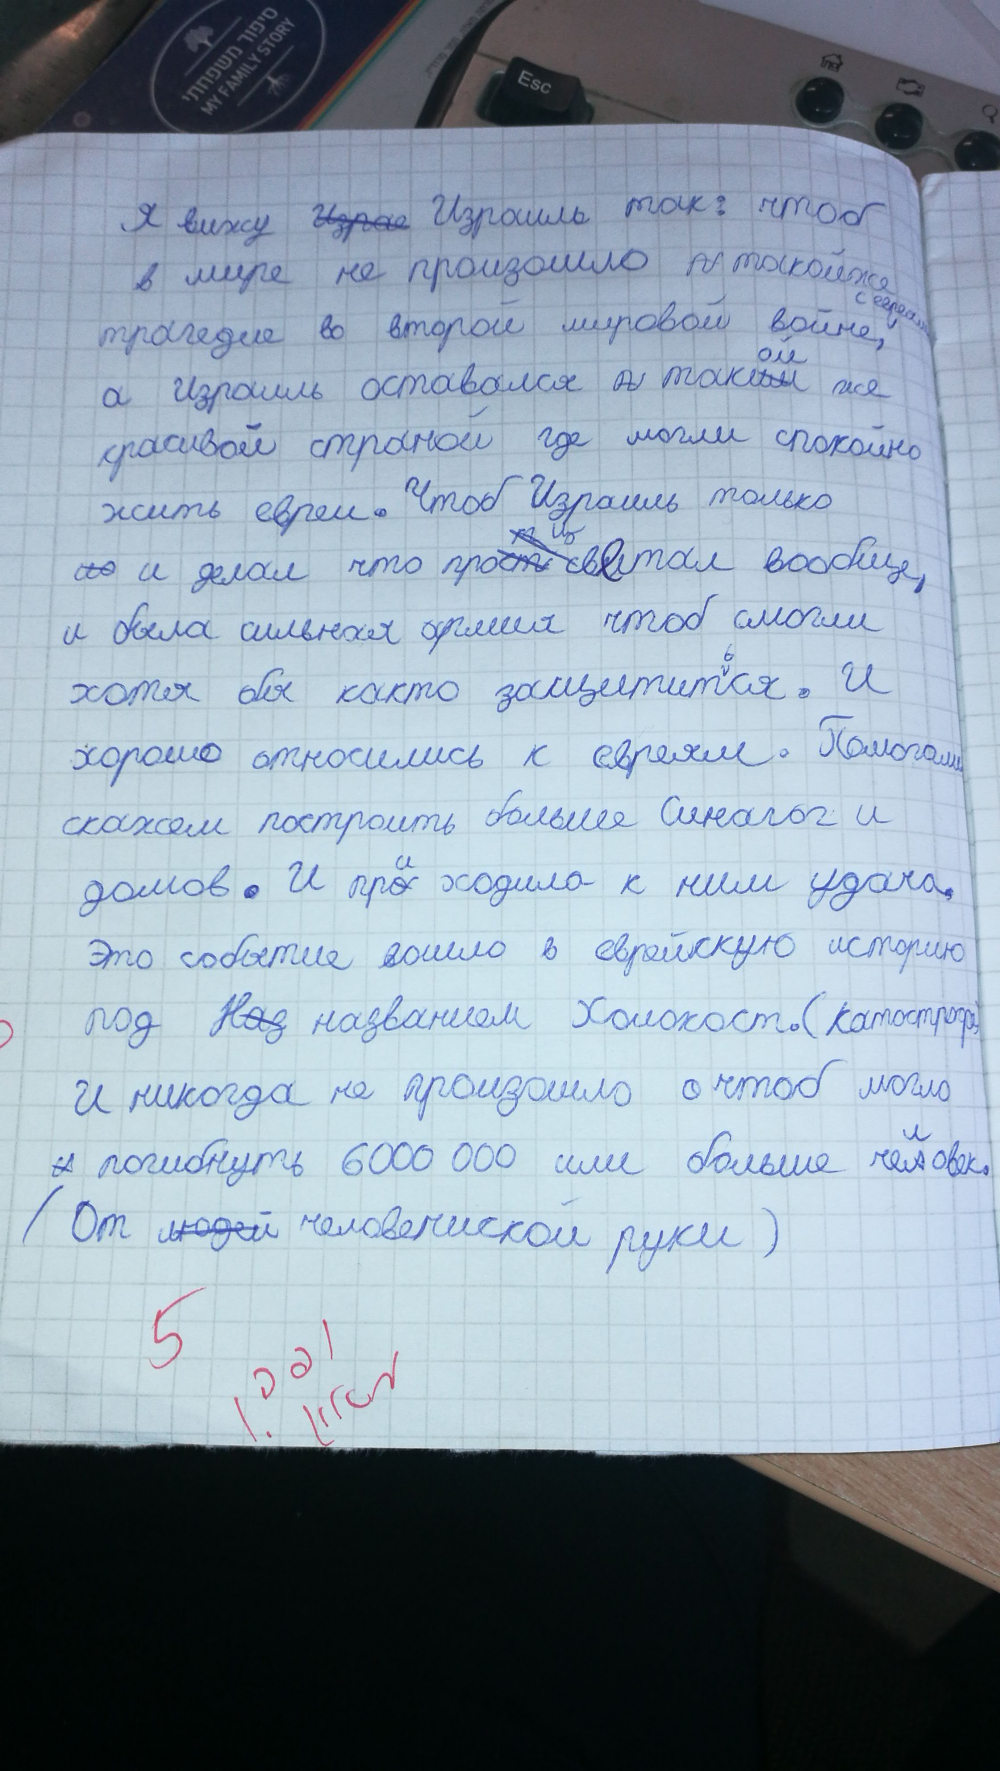 סיפור משפחתי
MY FAMILY STORY
Esc
Я вижу Израе Израиль так: чтоб
в мире не произошло такойже
с евреями
трагедие во второй мировой войне,
а Израиль оставался такой же
красивой страной где могли спокойно
жить евреи. Чтоб Израиль только
и делал что процветал вообще,
и была сильная армия чтоб смогли
хотя бы както защитится. И
хорошо относились к евреям. Помогали
скажем построить больше Синагог и
домов. И приходила к ним удача.
Это событие вошло в еврейкскую историю
под Наз названием Холокост. (Катострофа)
И никогда не произошло чтоб могло
погибнуть 6000 000 или больше человек.
(От людей человечиской руки)
5